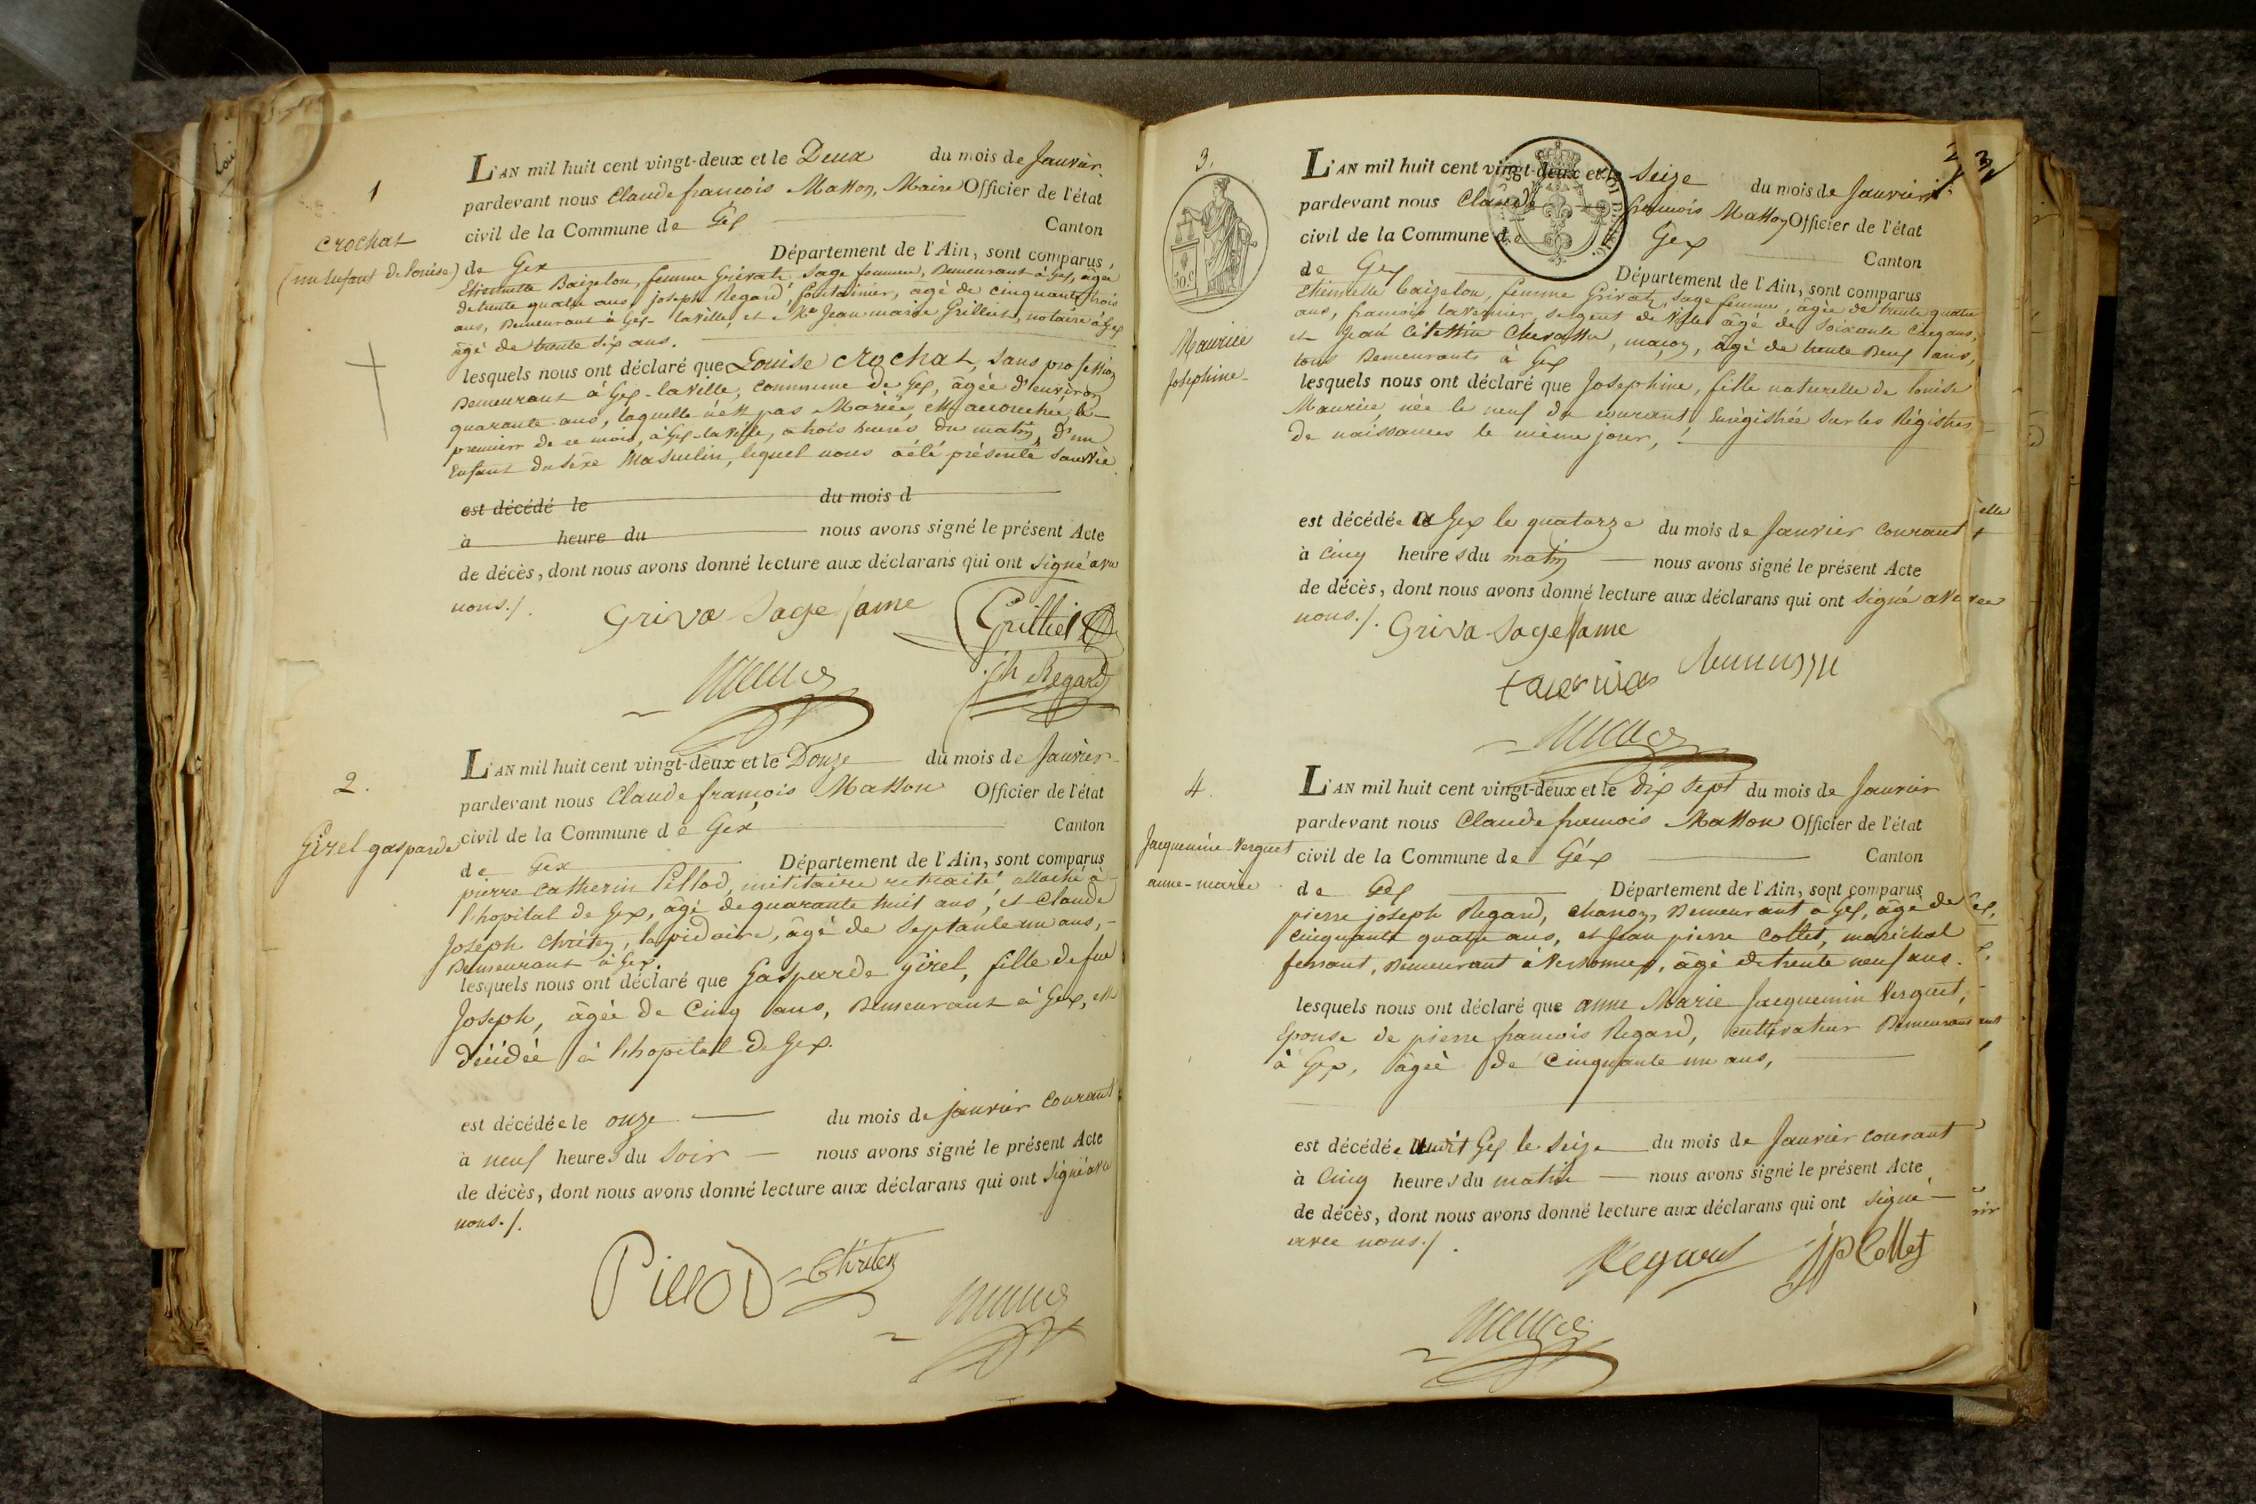 1
crochat
(un Enfant de louise)
L'AN mil huit cent vingt-deux et le Deux du mois de Janvier
pardevant nous Claude françois Masson, Maire Officier de l'état
civil de la Commune de Gex Canton
de Gex Département de l'Ain, sont comparus,
Etiennette Baizelon, femme Grivat, Sage femme, Demeurant à Gex, âgée
de trente quatre ans, joseph Regard, fontainier, âgé de cinquante trois
ans, Demeurant à Gex-laville, et Me Jean marie Grilliet, notaire à Gex
âgé de trente six ans.
lesquels nous ont déclaré que Louise Crochat, sans profession
Demeurant à Gex-laville, commune de Gex, âgée d'environ
quarante ans, laquelle n'est pas Mariée, est accouchée, le
premier de ce mois, à Gex-laville, a trois heures du matin, d'un
Enfant du sexe Masculin, lequel nous a été présenté sans vie.
est décédé le du mois d
à heure du nous avons signé le présent Acte
de décès, dont nous avons donné lecture aux déclarans qui ont signé avec
nous./.
Griva Sage fame Grilliet
Jh Regard
2.
Girel gasparde
L'AN mil huit cent vingt-deux et le Douze du mois de Janvier
pardevant nous Claude françois Masson Officier de l'état
civil de la Commune de Gex Canton
de Gex Département de l'Ain, sont comparus
pierre catherin Pillod, militaire retraité, attaché à
l'hopital de Gex, âgé de quarante huit ans, et Claude
Joseph Christin, lapidaire, âgé de Septante un ans,
Demeurant à Gex.
lesquels nous ont déclaré que Gasparde Girel, fille de feu
Joseph, âgée de Cinq ans, Demeurant à Gex, est
décédée à l'hopital de Gex.
est décédée le onze du mois de janvier courant
à neuf heures du soir nous avons signé le présent Acte
de décès, dont nous avons donné lecture aux déclarans qui ont signé avec
nous./.
Pillod Christin
3.
Maurice
Josephine
L'AN mil huit cent vingt-deux et le Seize du mois de Janvier
pardevant nous Claude françois Masson Officier de l'état
civil de la Commune de Gex Canton
de Gex Département de l'Ain, sont comparus
Etiennette Baizelon, femme Grivat, Sage femme, âgée de trente quatre
ans, françois tavernier, sergent de ville âgé de soixante cinq ans,
et Jean Celestin Chevassu, maçon, âgé de trente neuf ans,
tous Demeurants à Gex
lesquels nous ont déclaré que Josephine, fille naturelle de louise
Maurice, née le neuf du courant, Enregistrée sur les Régistres
de naissances le même jour,
est décédée à Gex le quatorze du mois de Janvier courant
à cinq heures du matin nous avons signé le présent Acte
de décès, dont nous avons donné lecture aux déclarans qui ont signé avec
nous./.
Griva Sage fame
4.
Jacquemin-Verguet
anne-marie
L'AN mil huit cent vingt-deux et le dix sept du mois de Janvier
pardevant nous Claude françois Masson Officier de l'état
civil de la Commune de Gex Canton
de Gex Département de l'Ain, sont comparus
pierre joseph Regard, charron, Demeurant à Gex, âgé de
cinquante quatre ans, et Jean pierre Collet, maréchal
ferrant, Demeurant à Versonnex, âgé de trente neuf ans.
lesquels nous ont déclaré que anne Marie Jacquemin Verguet,
Epouse de pierre françois Regard, cultivateur Demeurant
à Gex, âgée de Cinquante un ans,
est décédée audit Gex le seize du mois de Janvier courant
à cinq heures du matin nous avons signé le présent Acte
de décès, dont nous avons donné lecture aux déclarans qui ont signé
avec nous./.
Regard JP Collet